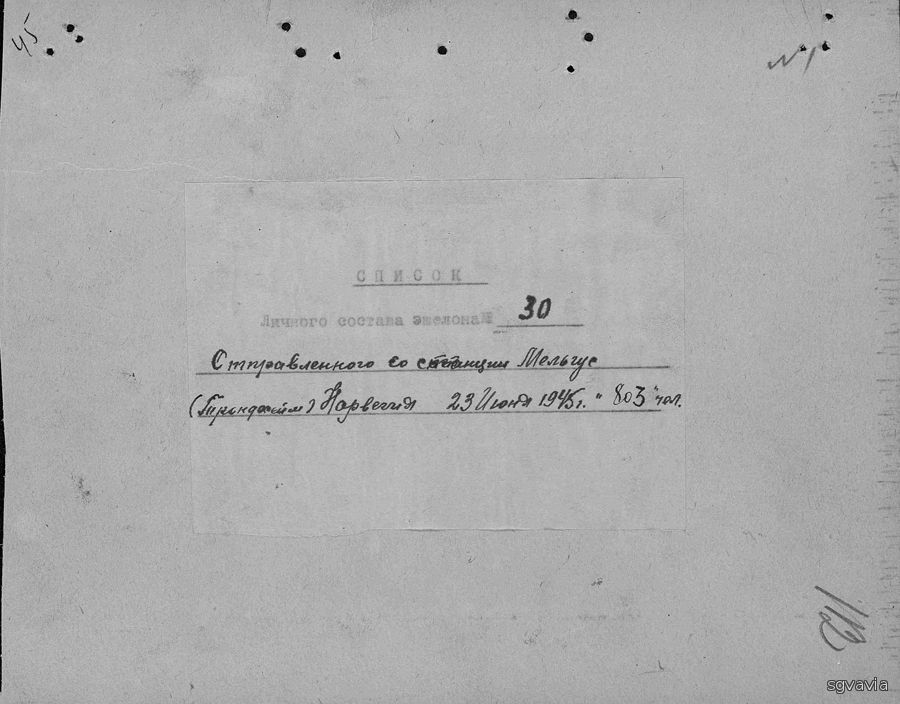 45
№ 1
СПИСОК
Личного состава эшелона № 30
Отправленного со станции Мельгус
(Трондхейм) Норвегия 23 Июня 1945 г. "803" чел.
sgvavia